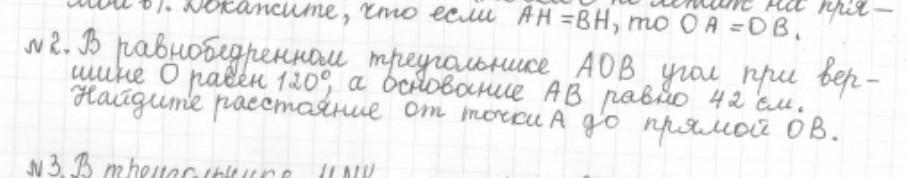 Докажите, что если AH = BH, то OA = OB.
№2. В равнобедренном треугольнике AOB угол при вер-
шине O равен 120°, а основание AB равно 42 см.
Найдите расстояние от точки A до прямой OB.
№3. В треугольнике